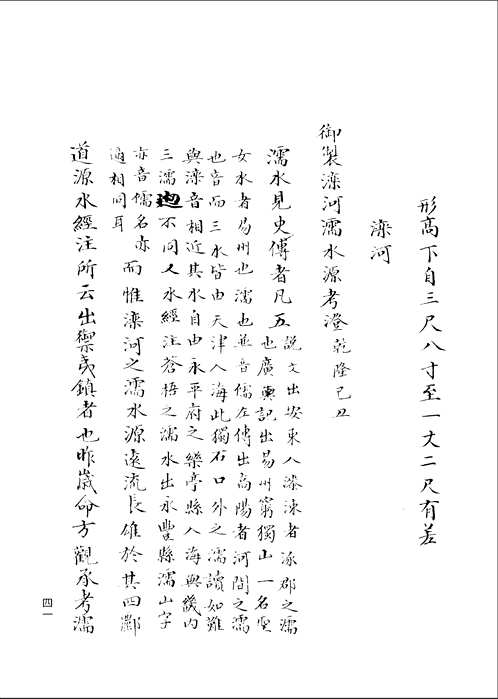 形高下自三尺八寸至一丈二尺有差
灤河
御製灤河濡水源考澄乾隆己丑
濡水見史傳者凡五説文出安東入漆涑者涿郡之濡
也廣輿記出易州窮獨山一名聖
女水者易州也濡也並音儒左傳出高陽者河間之濡
也音而三水皆由天津入海此獨石口外之濡讀如難
與灤音相近其水自由永平府之樂亭縣入海與畿内
三濡逈不同又水經注蒼梧之濡水出永豐縣濡山字
亦音儒名亦
適相同耳
而惟灤河之濡水源遠流長雄於其四酈
道源水經注所云出禦夷鎮者也昨歲命方觀承考濡
四一